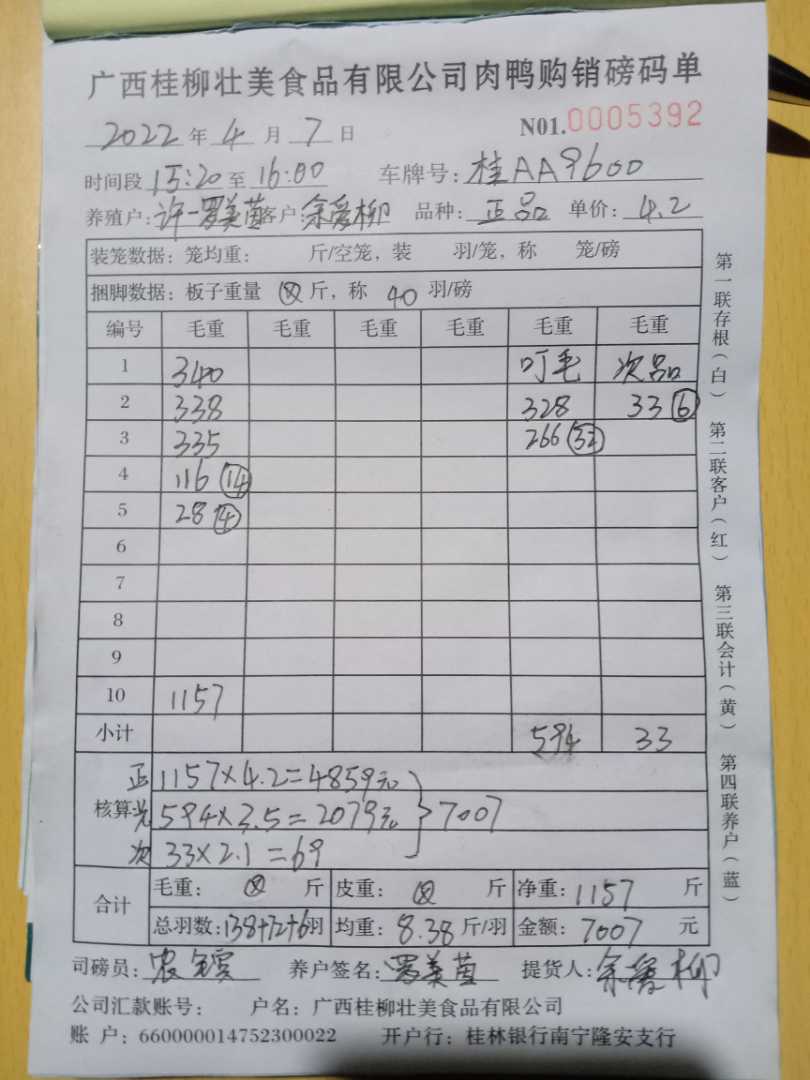 广西桂柳壮美食品有限公司肉鸭购销磅码单
2022年4月7日 N01.0005392
时间段15:20至16:00 车牌号:桂AA9600
养殖户:许一罗美茵客户:余爱柳 品种:正品 单价:4.2
装笼数据:笼均重: 斤/空笼,装 羽/笼,称 笼/磅
捆脚数据:板子重量 斤,称 40 羽/磅
编号 毛重 毛重 毛重 毛重 毛重 毛重
1 340 叮毛 次品
2 338 328 33⑥
3 335 266㉜
4 116⑭
5 28④
6
7
8
9
10 1157
小计 594 33
正 1157×4.2=4859元
核算光 594×3.5=2079元 7007
次 33×2.1=69
合计
毛重: 斤 皮重: 斤 净重:1157斤
总羽数:138+72+6羽 均重:8.38斤/羽 金额:7007元
司磅员: 养户签名:罗美茵 提货人:余爱柳
公司汇款账号: 户名:广西桂柳壮美食品有限公司
账 户:660000014752300022 开户行:桂林银行南宁隆安支行
第一联存根(白) 第二联客户(红) 第三联会计(黄) 第四联养户(蓝)